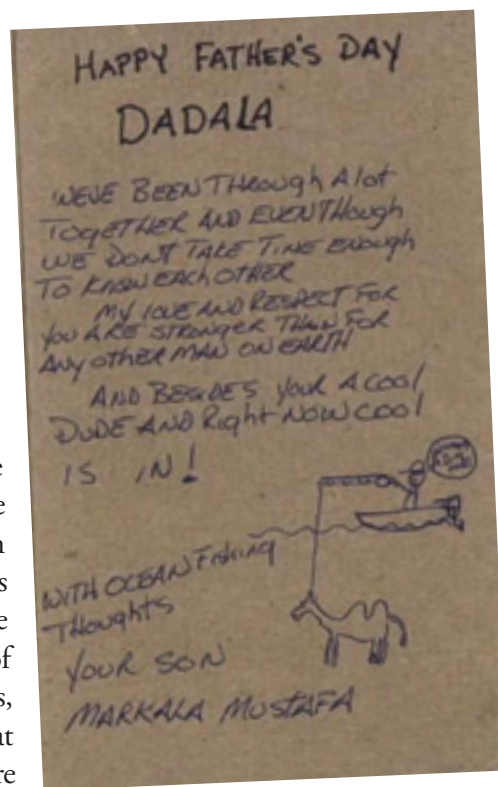 HAPPY FATHER'S DAY
DADALA
WEVE BEEN THROUGH A lot
TOGETHER AND EVENTHOUGH
WE DON'T TAKE TIME ENOUGH
TO KNOW EACH OTHER
MY LOVE AND RESPECT FOR
YOU ARE STRONGER THAN FOR
ANY OTHER MAN ON EARTH
AND BESIDE'S YOUR A COOL
DUDE AND Right NOW COOL
IS IN!
WITH OCEAN FISHING
THOUGHTS
YOUR SON
MARKALA MUSTAFA